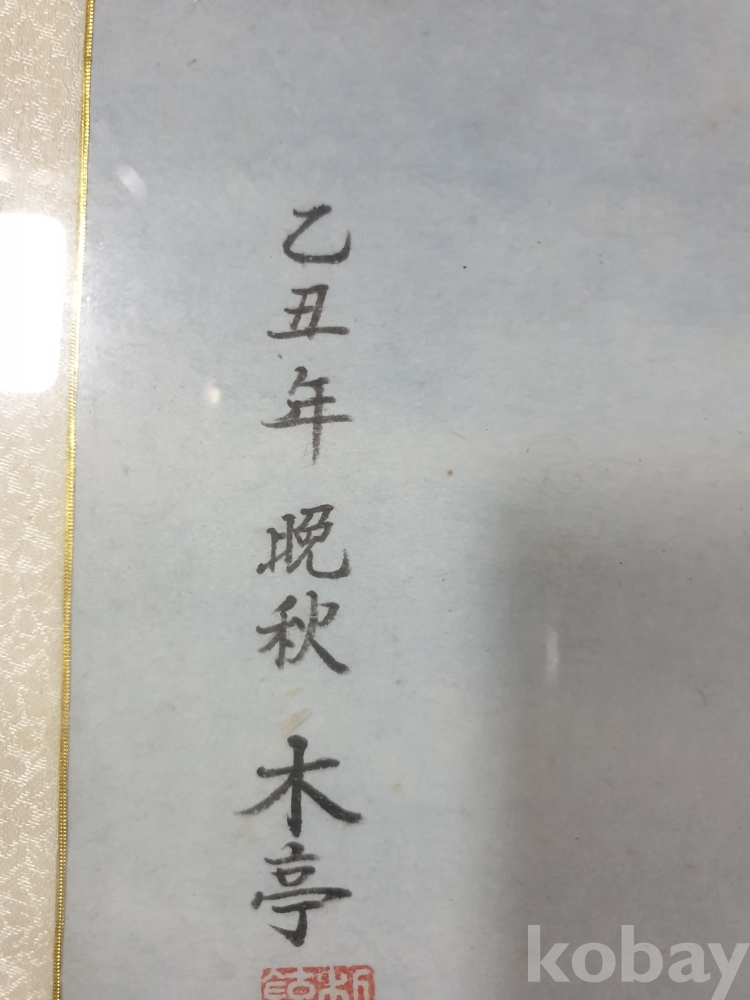 乙丑年 晩秋 木亭
kobay